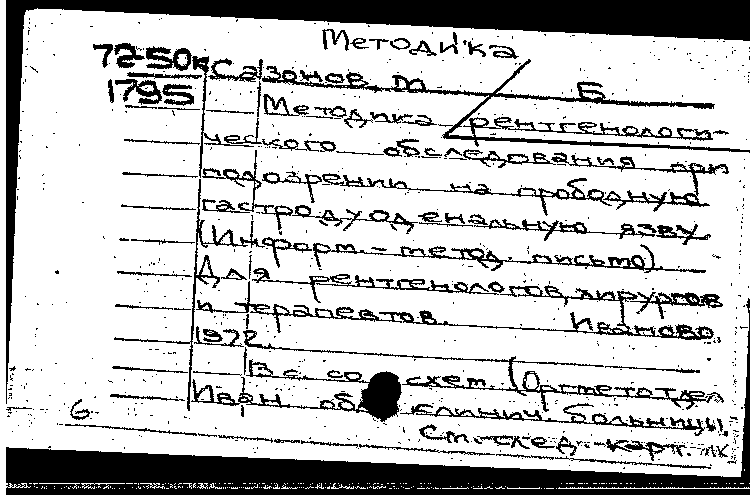 Методика
72-50к Сазонов, Т Б
1795
Методика рентгенологи-
ческого обследования при
подозрении на прободную
гастродуоденальную язву
(Информ.-метод. письмо)
Для рентгенологов, хирургов
и терапевтов. Иваново,
1972.
13 с. со схем. (Оргметотдел
Иван. обл клинич. больницы.
6 См. след. карт.